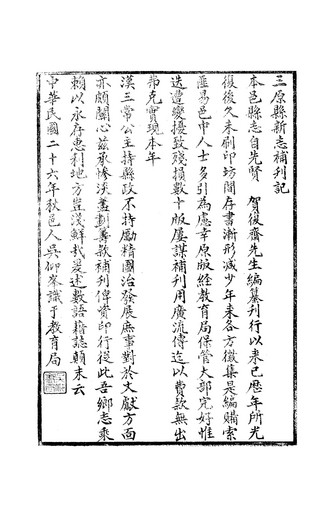 三原縣新志補刊記
本邑縣志自先賢　賀復齋先生編纂刊行以來已歷年所光
復後久未刷印坊間存書漸形減少年來各方徵集是編購索
匪易邑中人士多引為慮幸原版經教育局保管大部完好惟
迭遭變擾致殘損數十版屢謀補刊用廣流傳迄以費款無出
弗克實現本年
漢三常公主持縣政不特勵精圖治發展庶事對於文獻方面
亦頗關心茲承慘淡盡劃籌款補刊俾資印行從此吾鄉志乘
賴以永存惠利地方豈淺鮮哉爰述數語藉誌顛末云
中華民國二十六年秋邑人吳仰峯識于教育局